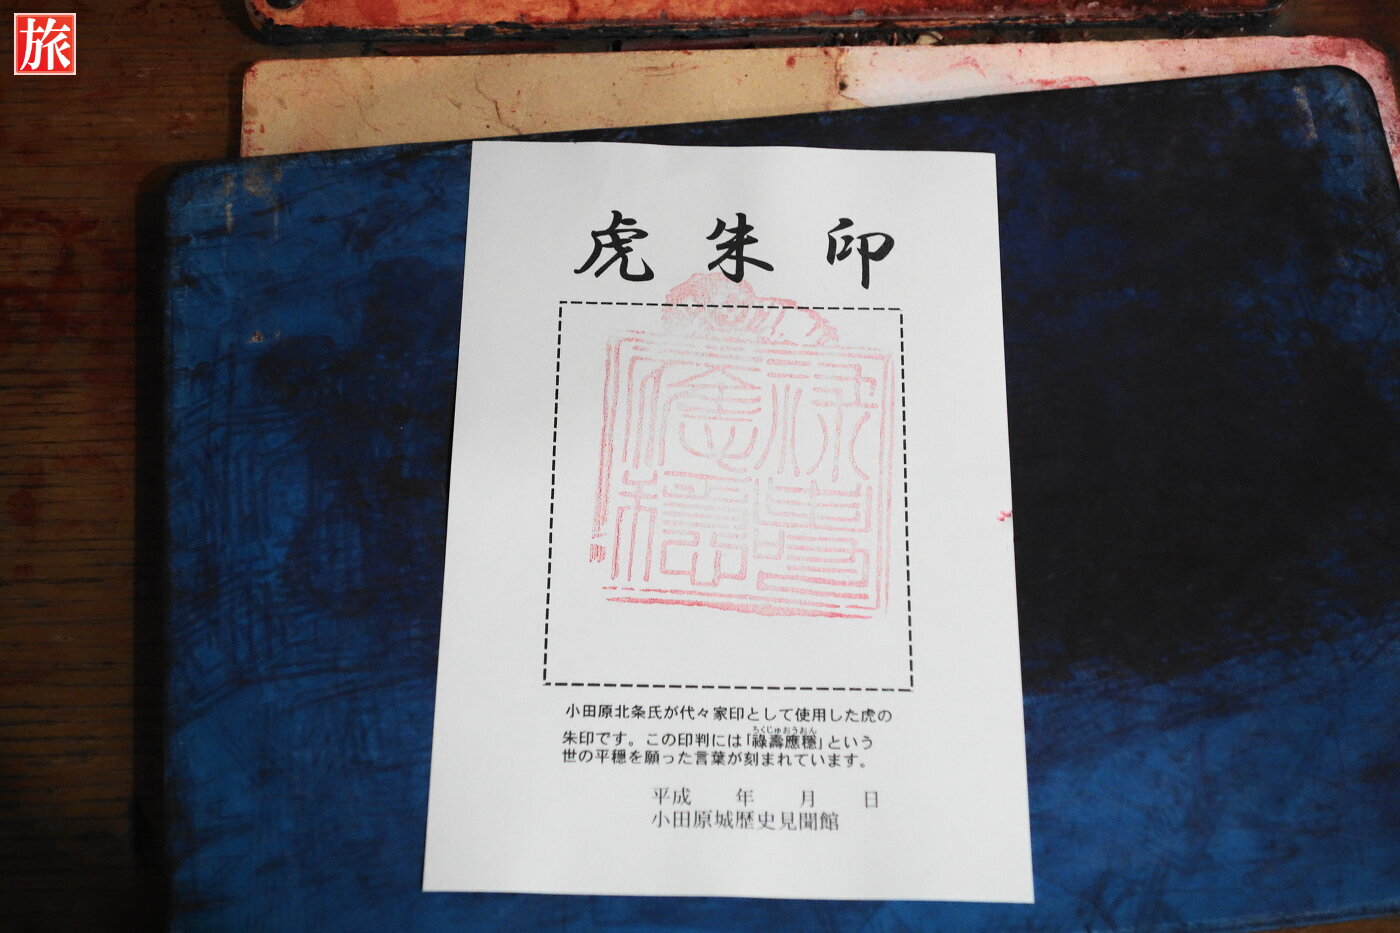 旅
虎朱印
祿壽應穩
小田原北条氏が代々家印として使用した虎の
朱印です。この印判には「祿壽應穏」という
ろくじゅおうおん
世の平穏を願った言葉が刻まれています。
平成 年 月 日
小田原城歴史見聞館